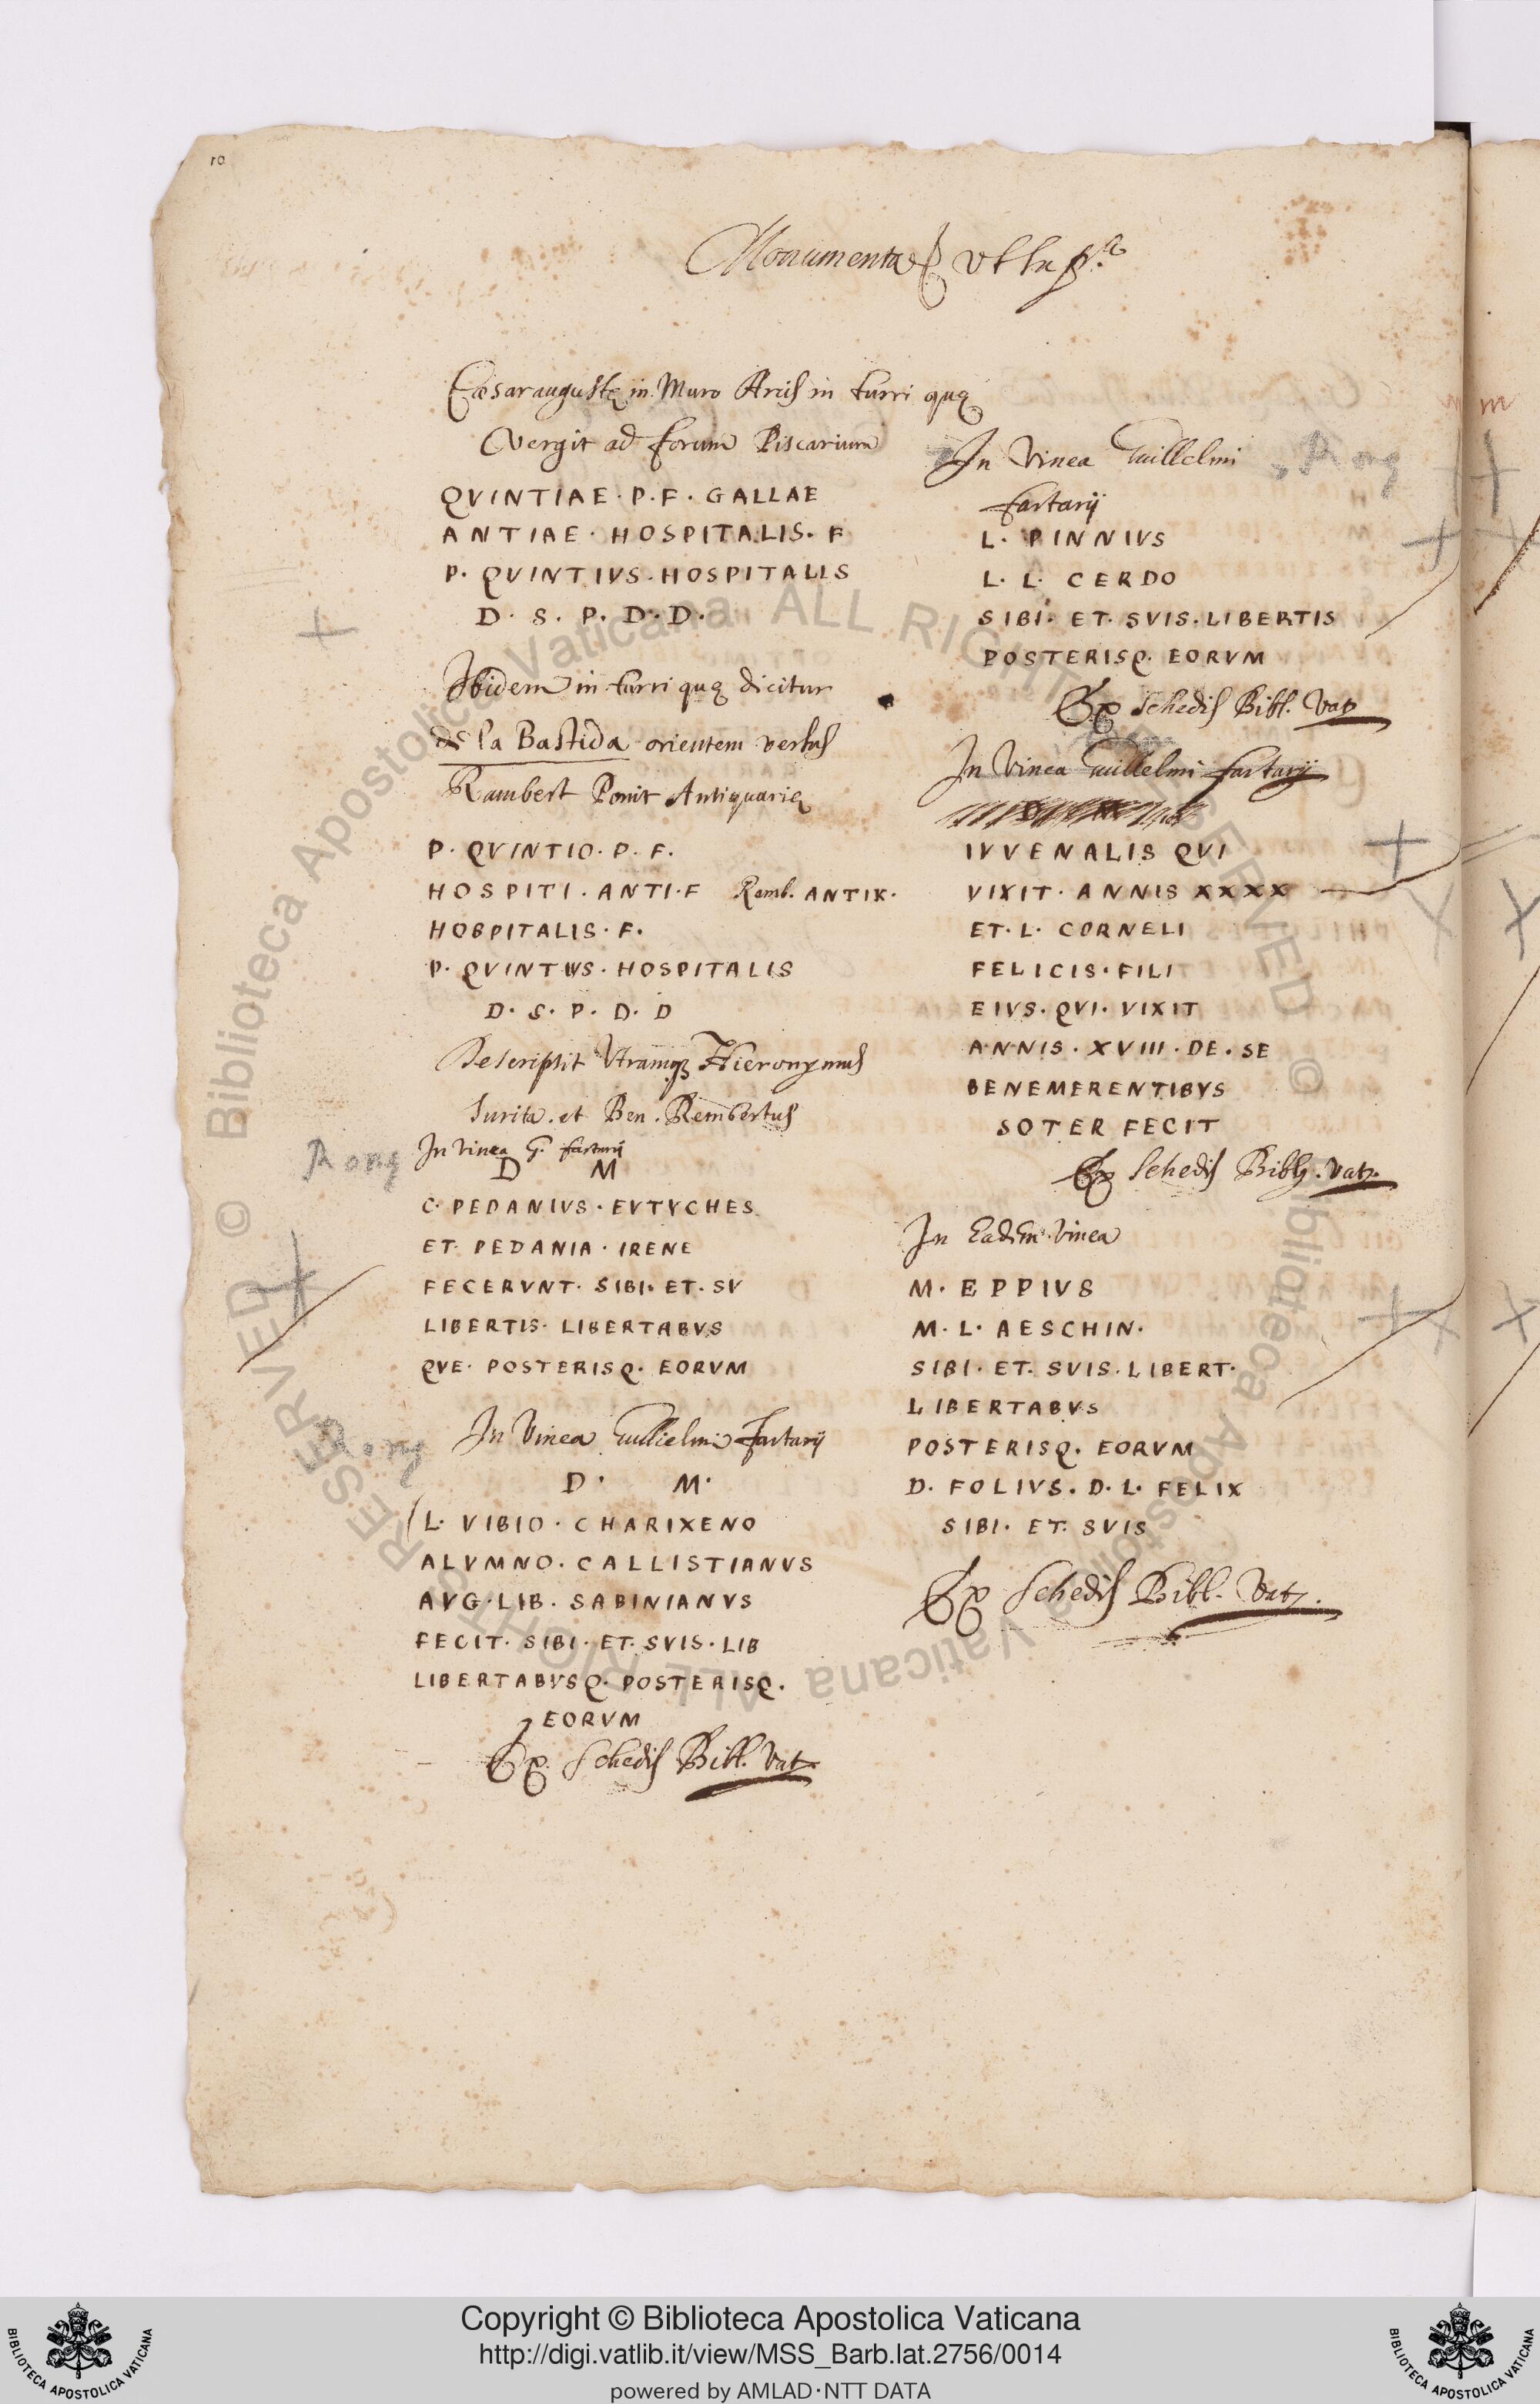 10
Monumenta
Cæsarauguste in Muro Arcis in turri quę
Vergit ad forum Piscarium
QVINTIAE · P · F · GALLAE
ANTIAE · HOSPITALIS · F
P · QVINTIVS · HOSPITALIS
D · S · P · D · D ·
Ibidem in turri quę dicitur
de la Bastida orientem versus
Rambert Ponit Antiquarię
P · QVINTIO · P · F ·
HOSPITI · ANTI · F Remb. ANTIK ·
HOBPITALIS · F ·
P · QVINTWS · HOSPITALIS
D · S · P · D · D
Descripsit Vtramq Hieronymus
Surita et Ben. Rembertus
In Vinea G. fartarij
D M
C · PEDANIVS · EVTYCHES
ET · PEDANIA · IRENE
FECERVNT · SIBI · ET · SV
LIBERTIS · LIBERTABVS
QVE · POSTERISQ · EORVM
In Vinea Guillielmi Fartarij
D · M ·
L · VIBIO · CHARIXENO
ALVMNO · CALLISTIANVS
AVG · LIB · SABINIANVS
FECIT · SIBI · ET · SVIS · LIB
LIBERTABVSQ · POSTERISQ ·
EORVM
Ex Schedis Bibl. Vat.
In Vinea Guillelmi
fartarij
L · PINNIVS
L · L · CERDO
SIBI · ET · SVIS · LIBERTIS
POSTERISQ · EORVM
Ex Schedis Bibl. Vat
In Vinea Guillelmi fartarij
IVVENALIS QVI
VIXIT · ANNIS XXXX
ET · L · CORNELI
FELICIS · FILI
EIVS · QVI · VIXIT
ANNIS · XVIII · DE · SE
BENEMERENTIBVS
SOTER FECIT
Ex Schedis Bibl. Vat.
In Eadem Vinea
M · EPPIVS
M · L · AESCHIN ·
SIBI · ET · SVIS · LIBERT ·
LIBERTABVS
POSTERISQ · EORVM
D · FOLIVS · D · L · FELIX
SIBI · ET · SVIS
Ex Schedis Bibl. Vat.
© Biblioteca Apostolica Vaticana ALL RIGHTS RESERVED © Biblioteca Apostolica Vaticana ALL RIGHTS RESERVED
BIBLIOTECA APOSTOLICA VATICANA
Copyright © Biblioteca Apostolica Vaticana
http://digi.vatlib.it/view/MSS_Barb.lat.2756/0014
powered by AMLAD·NTT DATA
BIBLIOTECA APOSTOLICA VATICANA